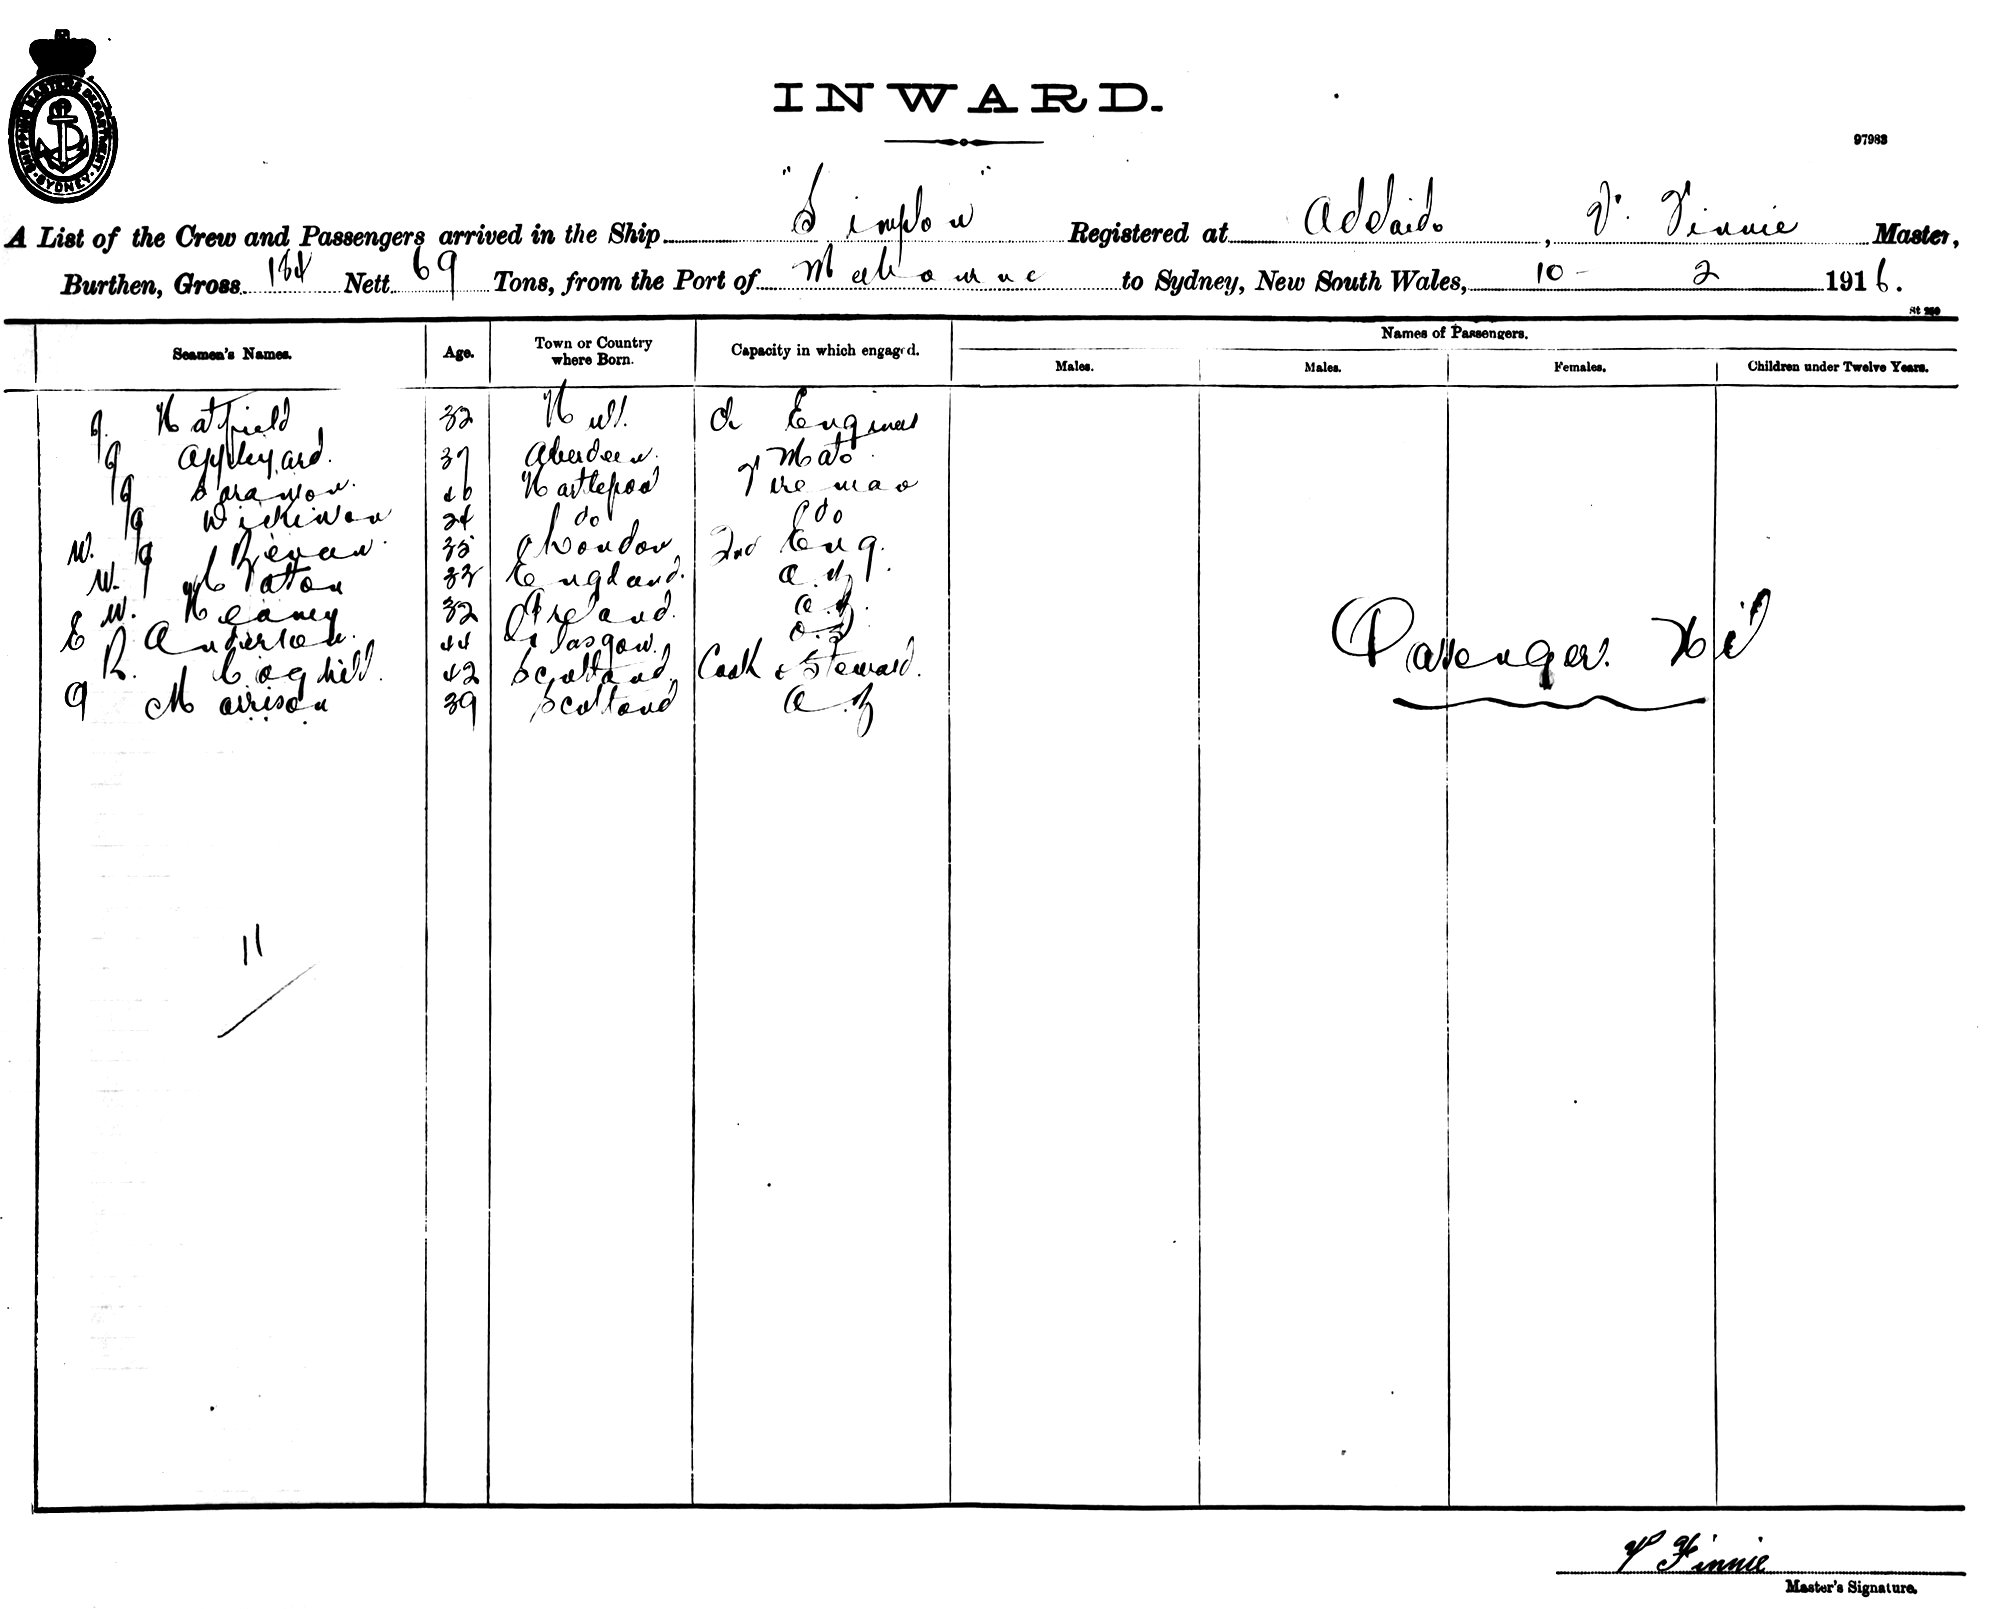 SHIPPING MASTERS DEPARTMENT
SYDNEY
INWARD.
97983
A List of the Crew and Passengers arrived in the Ship "Simplon" Registered at Adelaide, Finnie Master,
Burthen, Gross 184 Nett 69 Tons, from the Port of Melbourne to Sydney, New South Wales, 10 - 2 1916.
Seamen's Names. Age. Town or Country where Born. Capacity in which engaged. Names of Passengers.
Males. Males. Females. Children under Twelve Years.
Hatfield 32 Hull Engineer
Appleyard. 37 Aberdeen. Mate
46 Hartlepool Fireman
24 do do
W. Bevan. 35 London 2nd Eng.
W. Paton England.
W. Heaney 32 Ireland.
E Anderson. 44 Glasgow.
R. Coghill. 42 Scotland Cook & Steward.
Morrison 39 Scotland
Passengers. Nil
11
Finnie
Master's Signature.